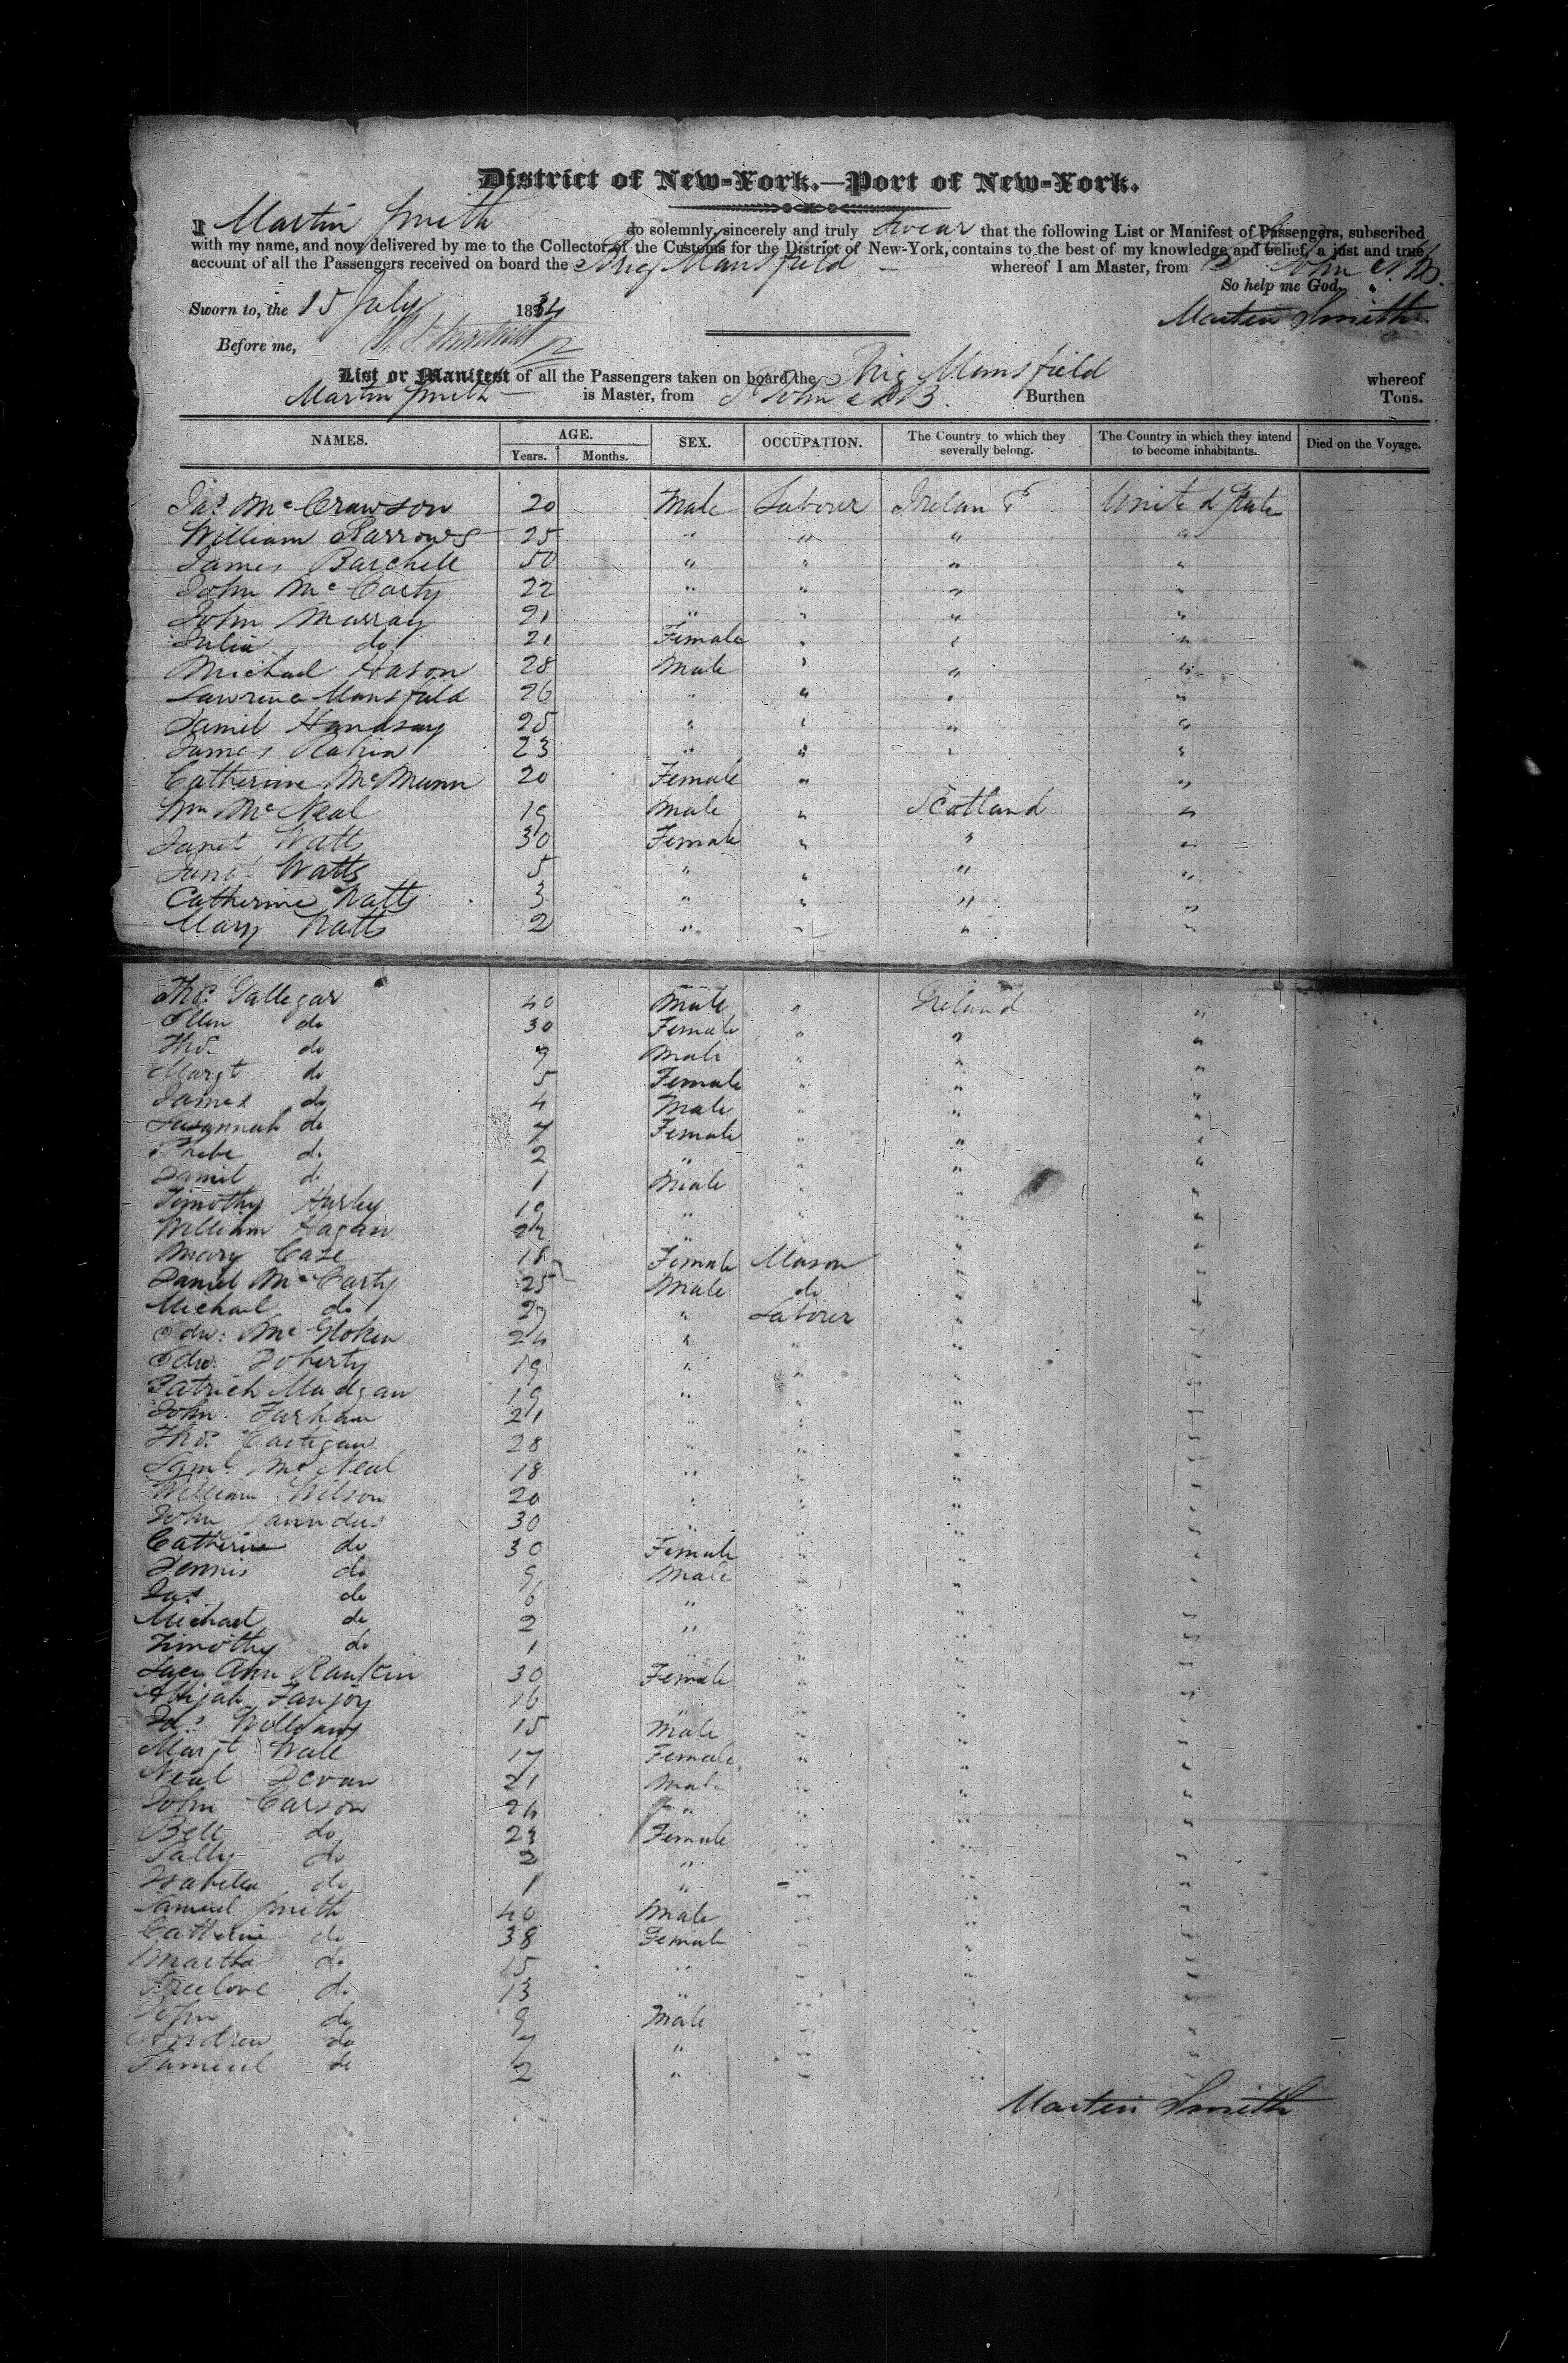 District of New-York.—Port of New-York.
I Martin Smith do solemnly, sincerely and truly Swear that the following List or Manifest of Passengers, subscribed
with my name, and now delivered by me to the Collector of the Customs for the District of New-York, contains to the best of my knowledge and belief, a just and true
account of all the Passengers received on board the Brig Mansfield whereof I am Master, from St John N.B.
So help me God.
Sworn to, the 15 July 1834
Martin Smith
Before me,
List or Manifest of all the Passengers taken on board the Brig Mansfield whereof
Martin Smith is Master, from St John N B. Burthen Tons.
NAMES. AGE. SEX. OCCUPATION. The Country to which they severally belong. The Country in which they intend to become inhabitants. Died on the Voyage.
Years. Months.
Jas McCrawson 20 Male Labourer Ireland United State
William Barrows 25 " " " "
James Barchell 50 " " " "
John McCarty 22 " " " "
John Murray 21 " " " "
Julia do 21 Female " " "
Michael Hason 28 Male " " "
Lawrence Mansfield 26 " " " "
Daniel 25 " " " "
James 23 " " " "
Catherine McMunn 20 Female " " "
Wm McNeal 19 Male " Scotland "
Janet Watts 30 Female " " "
Janet Watts 5 " " " "
Catherine Watts 3 " " " "
Mary Watts 2 " " " "
Thos Gallegar 40 Male " Ireland "
Ellen do 30 Female " " "
Thos do 9 Male " " "
Margt do 5 Female " " "
James do 4 Male " " "
Susannah do 7 Female " " "
Phebe do 2 " " " "
Daniel do 1 Male " " "
Timothy Hurley 19 " " " "
William Hagan 22 " " "
Mary Case 18 Female Mason " "
Daniel McCarty 25 Male do " "
Michael do 27 " Laborer " "
Edw: McGloken 24 " " " "
Edw. Doherty 19 " " " "
Patrick Madgan 19 " " " "
John Farham 21 " " " "
Thos Castigan 28 " " " "
Saml McNeal 18 " " " "
William Wilson 20 " " " "
John Saunders 30 " " " "
Catherine do 30 Female " " "
Dennis do 9 Male " " "
Jas do 6 " " " "
Michael do 2 " " " "
Timothy do 1 " " " "
Lucy Ann Rankin 30 Female " " "
Abijah Fanjoy 16 " " " "
Williams 15 Male " " "
Margt Wall 17 Female " " "
Neal Devan 21 Male " " "
John Carson 24 " " " "
Bell do 23 Female " " "
Sally do 2 " " " "
Isabella do 1 " " " "
Samuel Smith 40 Male " " "
Catherine do 38 Female " " "
Martha do 15 " " " "
Freelove do 13 " " " "
John do 9 Male " " "
Andrew do 7 " " " "
Samuel do 2 " " " "
Martin Smith